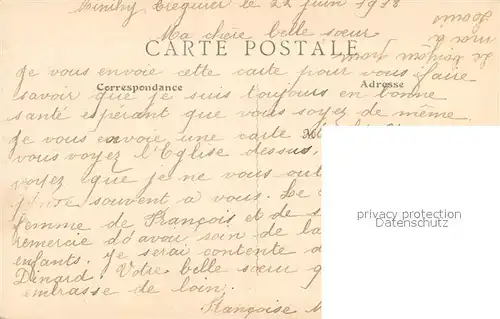 Minihy Tréguier le 22 juin 1918
Ma chère belle sœur
CARTE POSTALE
Je vous envoie cette carte pour vous faire
Correspondance
Adresse
savoir que je suis toujours en bonne
santé espérant que vous soyez de même
Je vous envoie une carte
vous voyez l'Eglise dessus,
voyez que je ne vous
souvent a vous. Le
femme de François et de
remercie d'avoir soin de la
enfants. Je serai contente
Dinard. Votre belle sœur
embrasse de loin.
Françoise
privacy protection
watermark